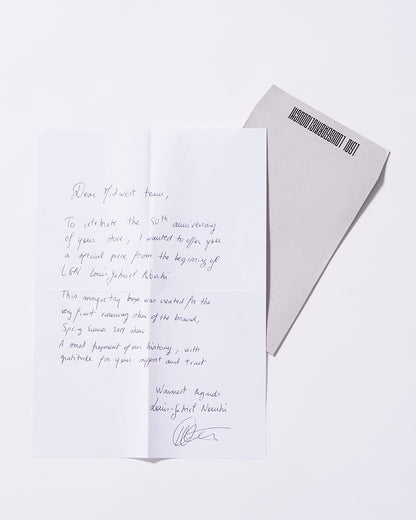 Dear Midwest team,
To celebrate the 50th anniversary
of your store, I wanted to offer you
a special piece from the beginning of
LGN Louis Gabriel Nouchi
This marquetry bag was created for the
very first runaway show of the brand,
Spring Summer 2019 show
A small fragment of our history, with
gratitude for your support and trust
Warmest Regards
Louis-Gabriel Nouchi
LGN LOUIS GABRIEL NOUCHI